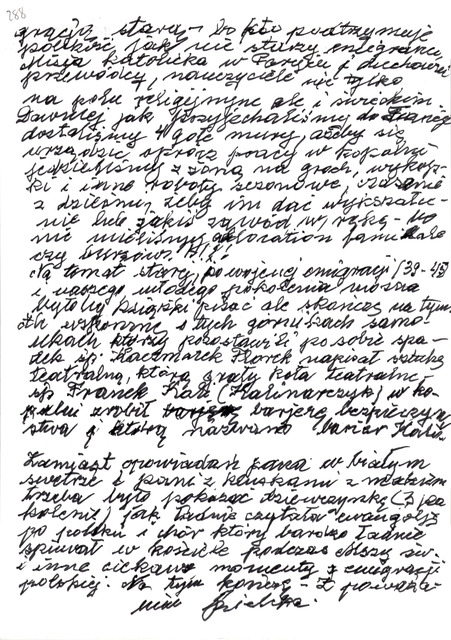 288
gracją starą - Bo kto podtrzymuje
polskość jak nie starzy emigranci
Misja Katolicka w Paryżu i duchowni
przewódcy, nauczyciele nie tylko
na polu religijnym ale i świeckim.
Dawniej jak przyjechaliśmy do Francji
dostaliśmy 4 gołe mury, ażeby się
urządzić oprócz pracy w kopalni
jeździliśmy z żoną na groch, wykop-
ki i inne roboty sezonowe,
z dziećmi, żeby im dać wykształce-
nie lub jakiś zawód w rękę - bo
nie mieliśmy allocation familiale
czy bursów!!!
Na temat starej powojennej emigracji (39-45)
i naszego młodego pokolenia można
by było książki pisać ale skończę na tym.
dla wspomnę o tych górnikach samo-
ukach którzy pozostawili po sobie spa-
dek śp. Kaczmarek Florek napisał sztukę
teatralną, którą grały koła teatralne
śp. Franek Kali (Kalinarczyk) w ko-
palni zrobił barjerę bezpieczeń
stwa i którą nazwano barier Kali.
Zamiast opowiadań pana w białym
swetrze i pani z kluskami z makiem
trzeba było pokazać dziewczynkę (3 po
kolenie) jak ładnie czytała ewangelję
po polsku i chór który bardzo ładnie
śpiewał w kościele podczas Mszy św.
i inne ciekawe momenty z emigracji
polskiej. Na tym kończę - Z poważa-
niem